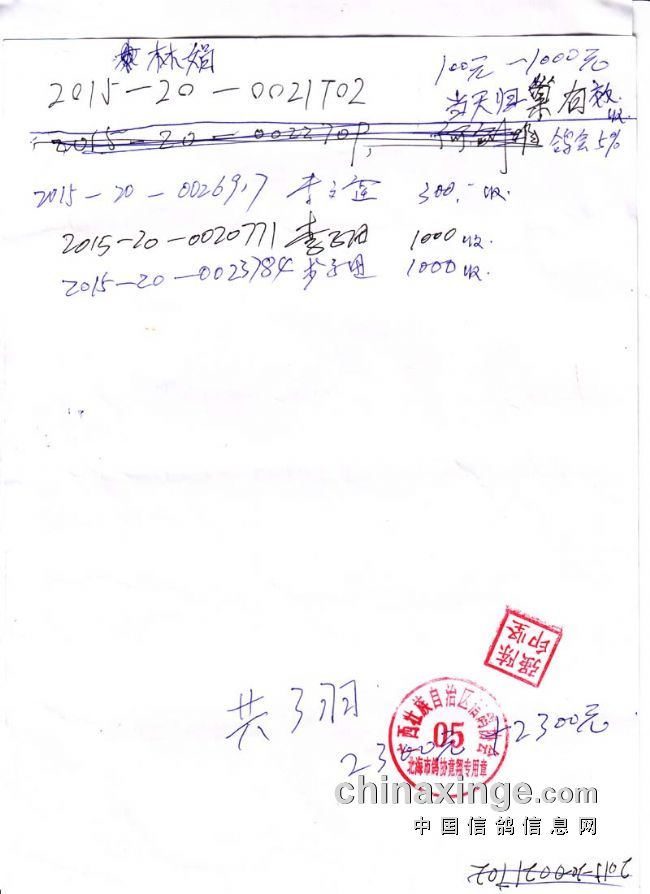 林娟
2015-20-0021702
100元-1000元
当天归巢有效
收
鸽会5%
2015-20-0026917 李 300.- 收.
2015-20-0020771 李 1000收.
2015-20-0023784 李 1000收.
共3羽
2300元
2300元
广西壮族自治区信鸽协会
05
北海市鸽协竞翔专用章
陈坚强印
chinaxinge.com
中国信鸽信息网
2015-20-0021702